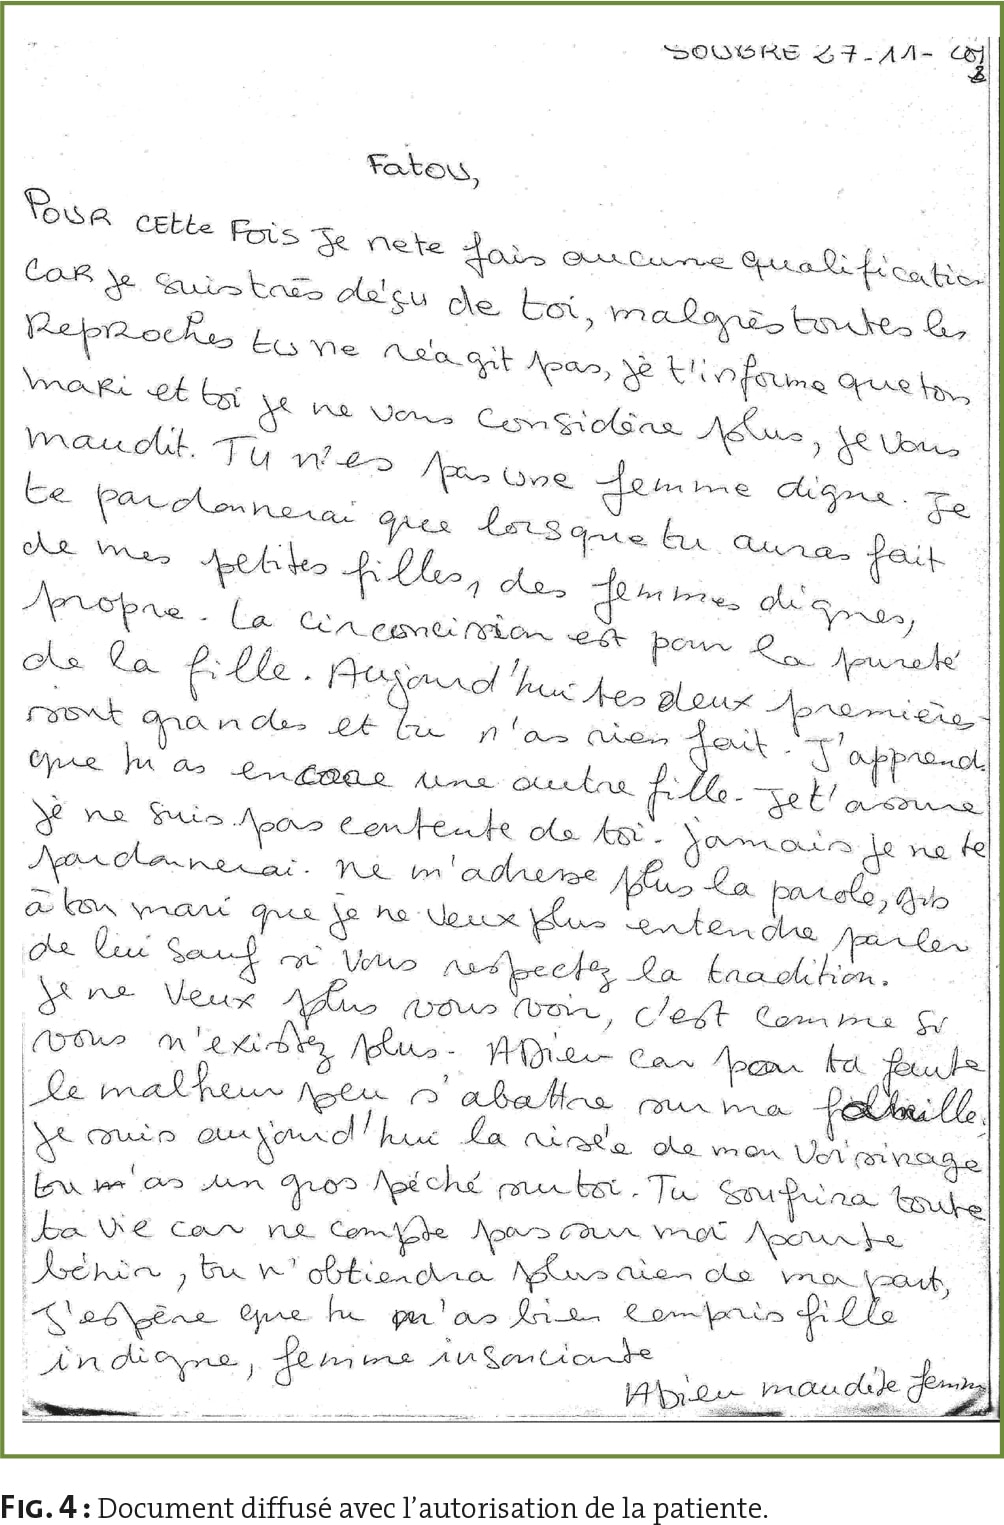 SOUBRE 27-11-
Fatou,
POUR CEtte Fois Je ne te fais aucune qualification
CAR je suis très déçu de toi, malgrès toutes les
Reproches tu ne réagit pas, je t'informe que ton
maRi et toi je ne vous considère plus, je vous
maudit. Tu n'es pas une femme digne. Je
te pardonnerai que lorsque tu auras fait
de mes petites filles, des femmes dignes,
propre. La circoncision est pour la pureté
de la fille. Aujourd'hui tes deux premières
sont grandes et tu n'as rien fait. J'apprend
que tu as encore une autre fille. Je t'assure
je ne suis pas contente de toi. jamais je ne te
pardonnerai. ne m'adresse plus la parole, dis
à ton mari que je ne veux plus entendre parler
de lui sauf si vous respectez la tradition.
Je ne veux plus vous voir, c'est comme si
vous n'existez plus. ADieu car pour ta faute
le malheur peu s'abattre sur ma famille.
Je suis aujourd'hui la risée de mon voisinage
tu as un gros péché sur toi. Tu soufrira toute
ta vie car ne compte pas sur moi pour te
bénir, tu n'obtiendra plus rien de ma part,
J'espère que tu m'as bien compris fille
indigne, femme insouciante
ADieu maudite femme
FIG. 4 : Document diffusé avec l'autorisation de la patiente.